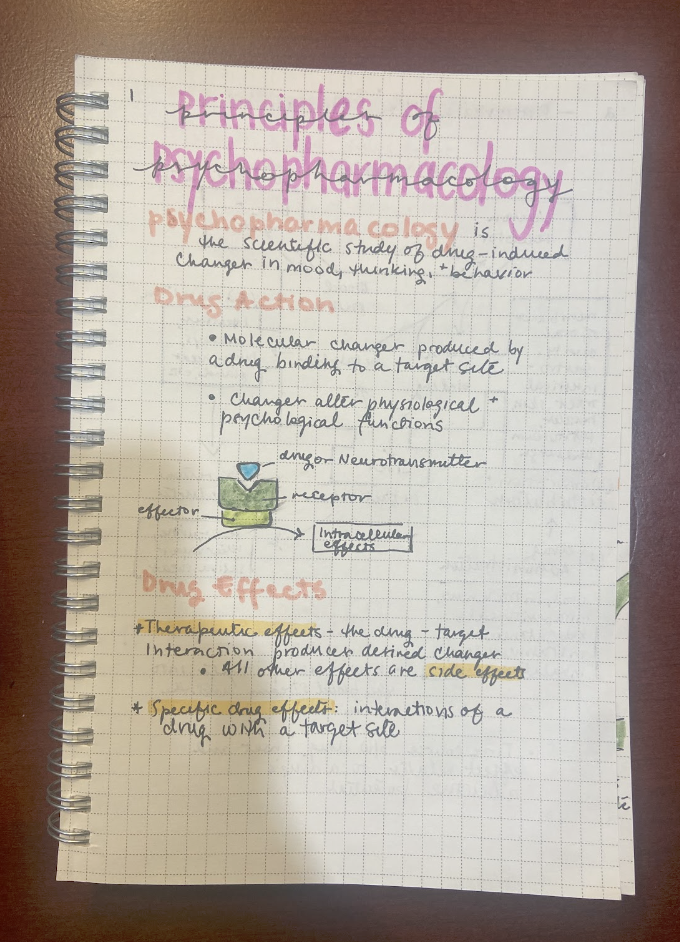 1
principles of
psychopharmacology
psychopharmacology is
the scientific study of drug-induced
changes in mood, thinking, + behavior
Drug Action
• Molecular changes produced by
a drug binding to a target site
• Changes alter physiological +
psychological functions
drug or Neurotransmitter
receptor
effector
Intracellular
effects
Drug Effects
*Therapeutic effects - the drug - target
Interaction produces desired changes
• All other effects are side effects
* Specific drug effects: interactions of a
drug with a target site